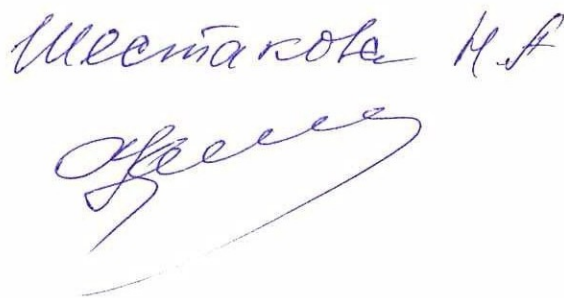 Шестакова Н.А